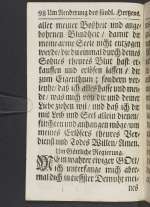 98 Um Aenderung des sündl. Hertzens.
aller meiner Boßheit und ange-
bohrnen Blindheit / damit dir
meine arme Seele nicht entzogen
werde / die du einmal durch deines
Sohnes theures Blut hast er-
kauffen und erlösen lassen / dir
zum Eigenthum / sondern ver-
leihe / daß ich alles hasse und mei-
de / was mich von dir und deiner
Liebe ziehen will / und daß ich dir
mit Leib und Seel allein dienen /
und anhangen möge / um
meines Erlösers theures Ver-
dienst und Todes Willen / Amen.
Um Gottselige Regierung.
mein wahrer ewiger GOtt /
ich unterfange mich aber-
mal dich in tieffster Demuth um